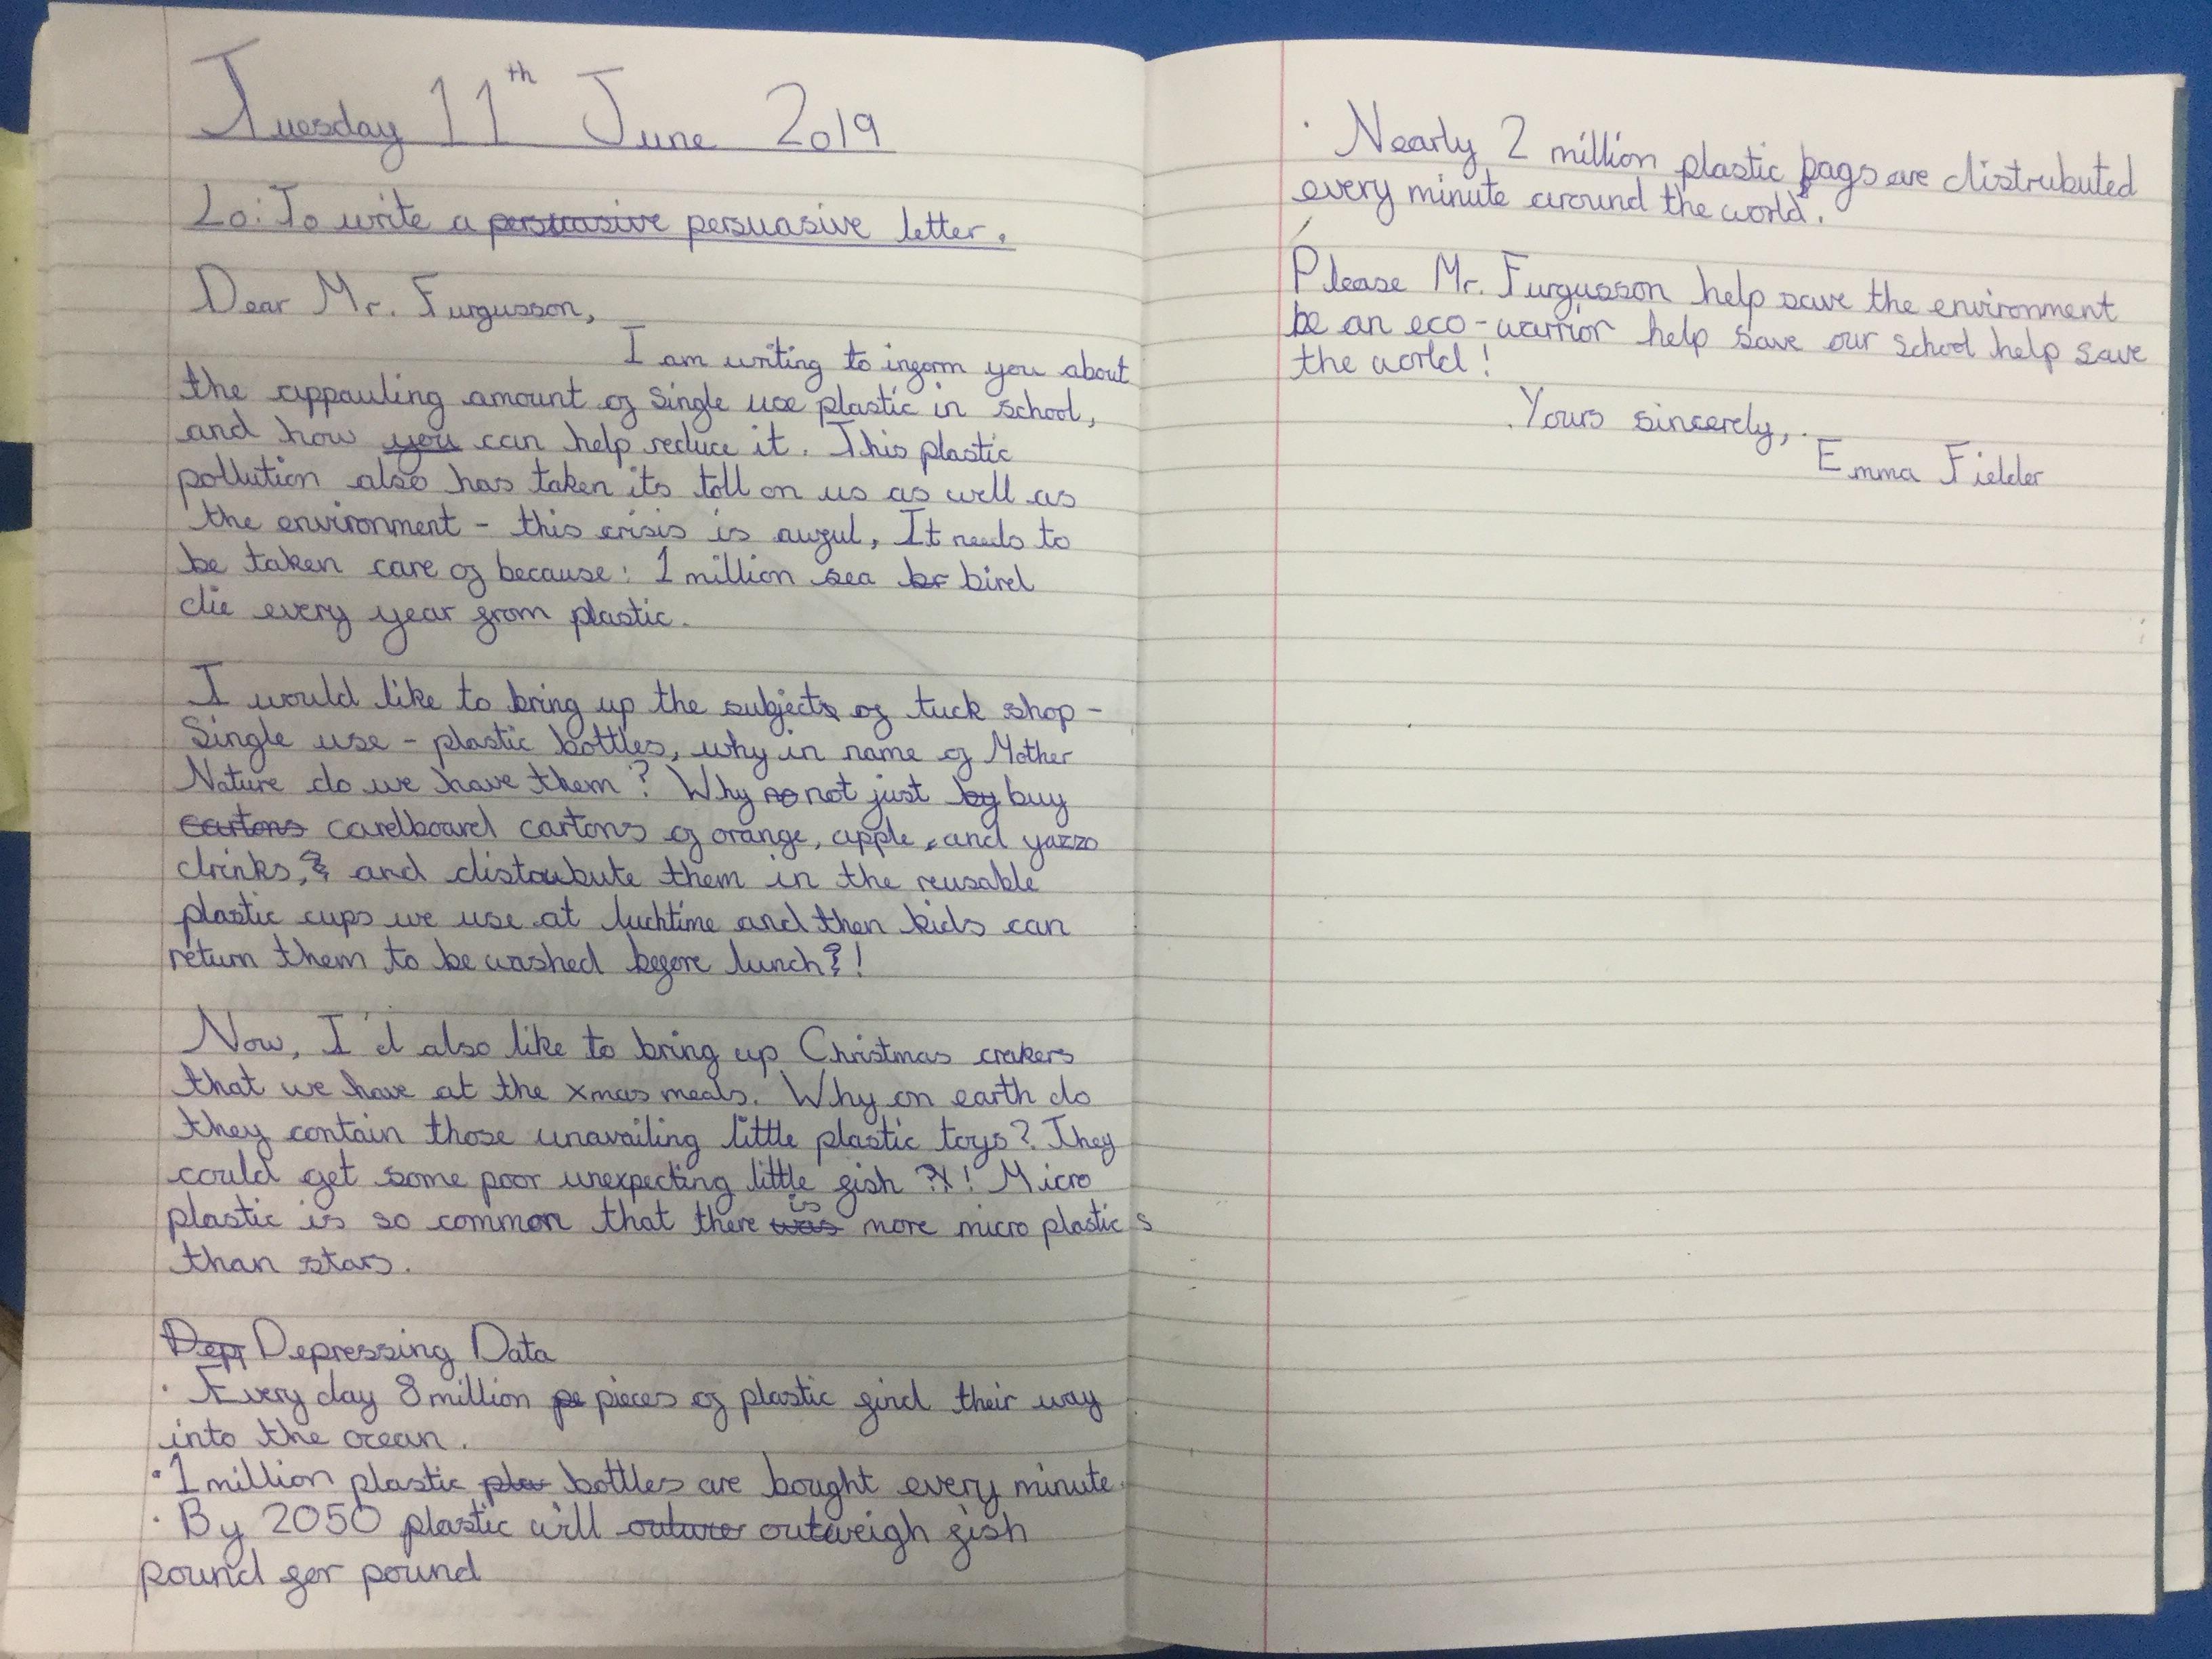 Tuesday 11th June 2019
Lo: To write a persuasive persuasive letter.
Dear Mr. Furgusson,
I am writing to inform you about
the appauling amount of single use plastic in school,
and how you can help reduce it. This plastic
pollution also has taken its toll on us as well as
the environment - this crisis is awful, It needs to
be taken care of because: 1 million sea br bird
die every year from plastic.
I would like to bring up the subject of tuck shop -
Single use - plastic bottles, why in name of Mother
Nature do we have them? Why no not just by buy
cartons cardboard cartons of orange, apple, and yazzo
drinks, and distrubute them in the reusable
plastic cups we use at luchtime and then kids can
return them to be washed before lunch?!
Now, I'd also like to bring up Christmas crakers
that we have at the xmas meals. Why on earth do
they contain those unavailing little plastic toys? They
could get some poor unexpecting little fish ?! Micro
plastic is so common that there was is more micro plastics
than stars.
Depr Depressing Data
· Every day 8 million pe pieces of plastic find their way
into the ocean.
· 1 million plastic pla bottles are bought every minute.
· By 2050 plastic will outwe outweigh fish
pound for pound
· Nearly 2 million plastic bags are distrubuted
every minute around the world.
Please Mr. Furgusson help save the environment
be an eco-warrior help save our school help save
the world!
Yours sincerely,
Emma Fielder